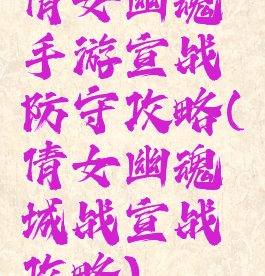 倩女幽魂
手游宣战
防守攻略(
倩女幽魂
城战宣战
攻略)